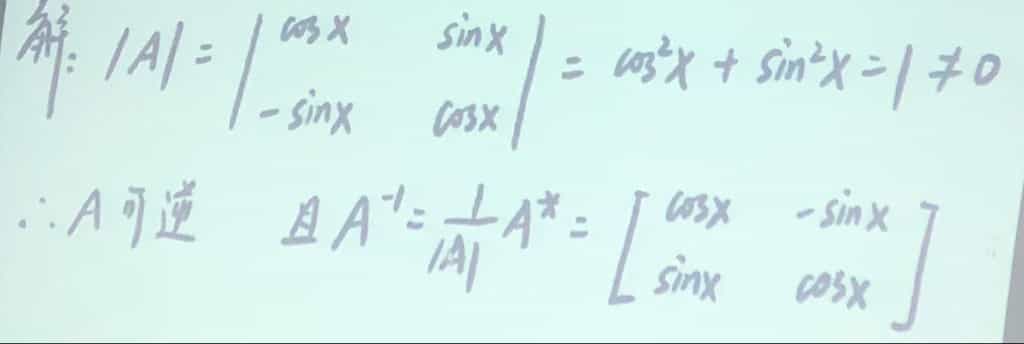 解: |A| = | cosx sinx -sinx cosx | = cos²x + sin²x = 1 ≠ 0
∴ A 可逆 且 A⁻¹ = 1/|A| A* = [ cosx -sinx sinx cosx ]